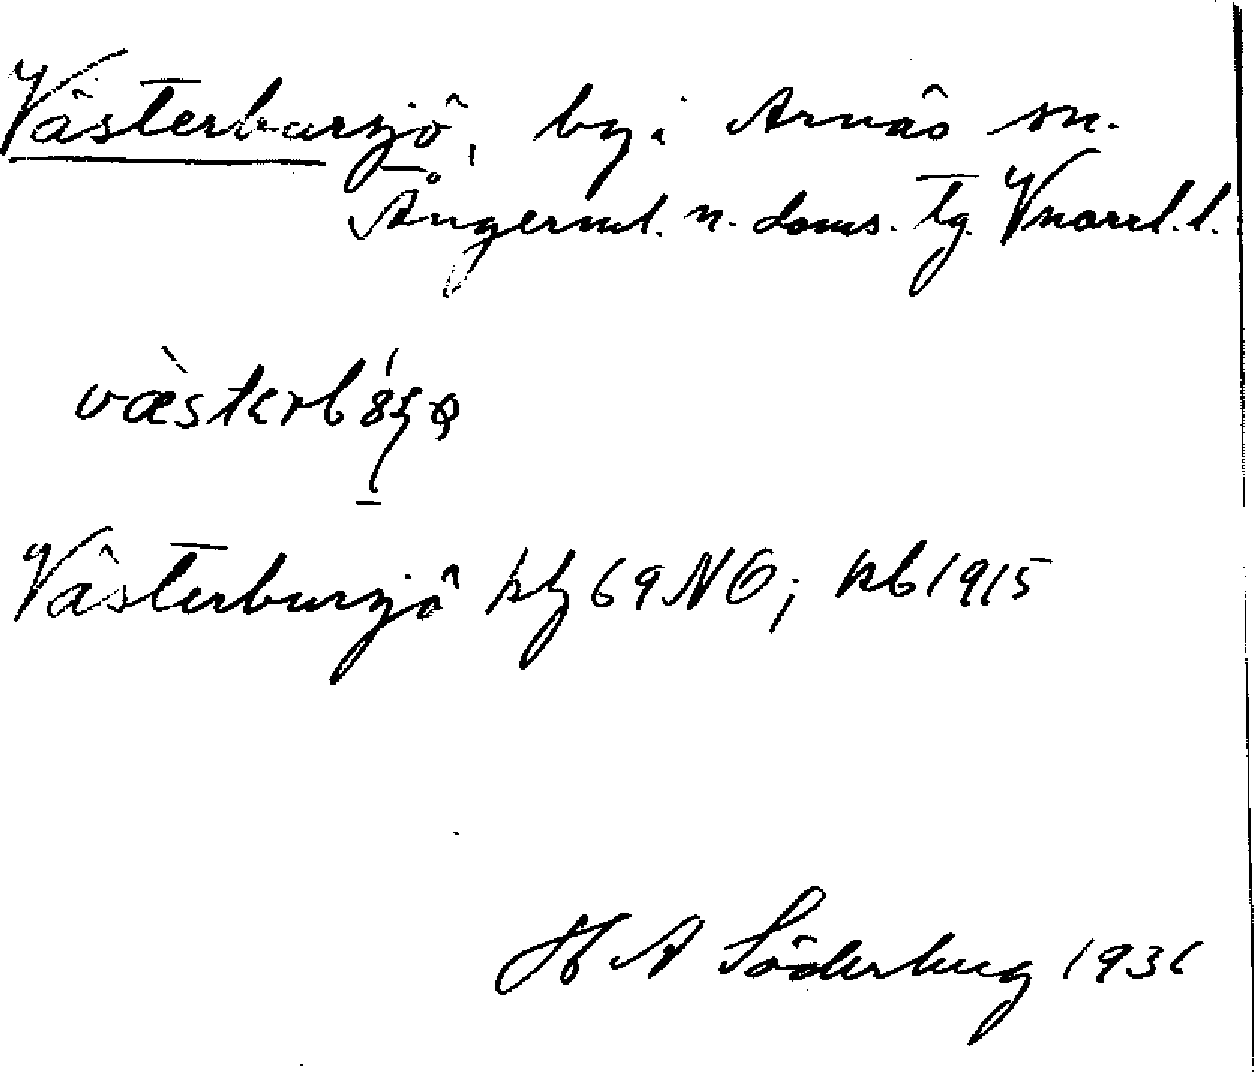 Västerbursjö, by i Arnäs sn.
Ångerml. n. doms. tg. Vnorrl. l.
Västerbursjö kbl 69 NO; kb 1915
H A Söderberg 1931